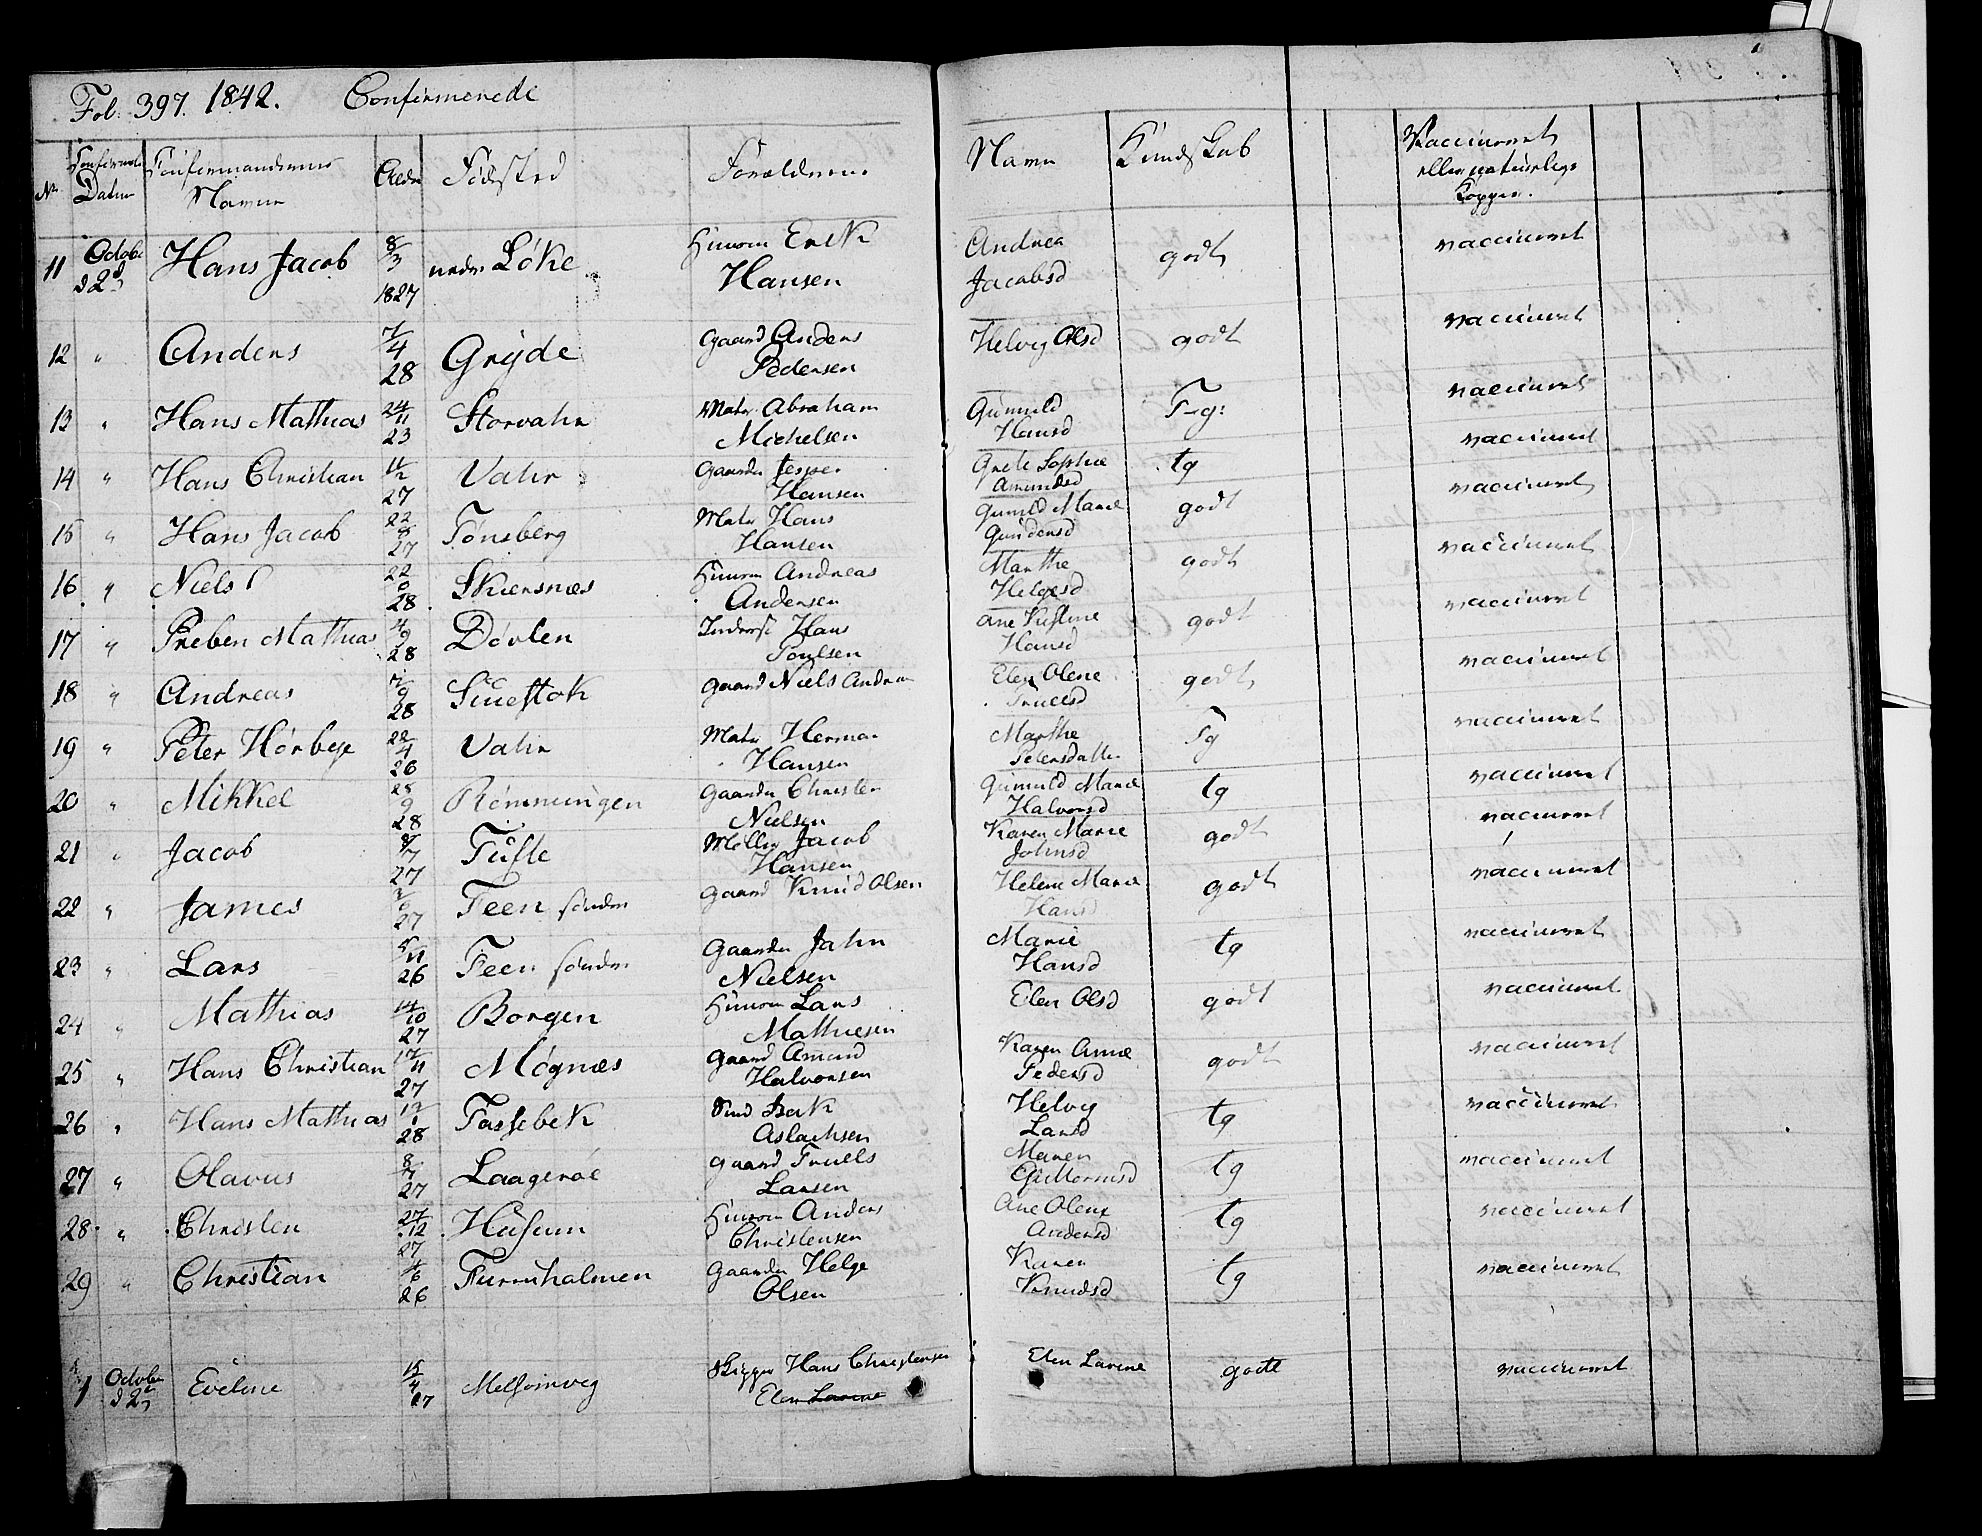 Fol. 397. 1842. Confirmerede
No Confirmat. Datum Confirmandernes Navne Alder Födested Forældrenes Navne Kundskab Vaccineret eller naturlige Kopper.
11 Octob. d 2d Hans Jacob 8/3 1827 nedre Löke Huusm Erik Hansen Andrea Jacobsd godt vaccineret
12 " Anders 7/4 28 Gryde Gaard Anders Pedersen Helvig Olsd godt vaccineret
13 " Hans Mathias 24/11 23 Storvahr Matr Abraham Michelsen Gunnild Hansd T-g: vaccineret
14 " Hans Christian 11/2 27 Vahr Gaardm Jesper Hansen Grete Sophie Amundsd tg vaccineret
15 " Hans Jacob 22/8 27 Tönsberg Matr Hans Hansen Gunild Marie Gundersd godt vaccineret
16 " Niels 22/ 28 Skiersnæs Huusm Andreas Andersen Marthe Helgesd godt vaccineret
17 " Preben Mathias 4/9 28 Dövlen Inderst Hans Poulsen Ane Kistine Hansd godt vaccineret
18 " Andreas 7/9 28 Gaard Niels Elen Olene Truelsd godt vaccineret
19 " Peter Hörbye 22/4 26 Vahr Matr Herman Hansen Marthe Petersdatter Tg vaccineret
20 " Mikkel 28/9 28 Römmingen Gaardm Christen Nielsen Gunuld Marie Halvorsd tg vaccineret
21 " Jacob 8/7 27 Tufte Möller Jacob Hansen Karen Marie Johnsd godt vaccineret
22 " James 27 Teen söndre Gaard Knud Olsen Helene Marie Hansd godt vaccineret
23 " Lars 5/11 26 Teen söndre Gaardm Jahn Nielsen Marie Hansd tg vaccineret
24 " Mathias 14/10 27 Borgen Huusm Lars Mathiesen Elen Olsd godt vaccineret
25 " Hans Christian 17/11 27 Mögnæs Gaard Amund Halvorsen Karen Anne Pedersd godt vaccineret
26 " Hans Mathias 12/1 28 Fassebek Isak Aslachsen Helvig Larsd tg vaccineret
27 " Olavus 8/7 27 Laageröe Gaard Truels Larsen Maren Guttormsd tg vaccineret
28 " Christen 27/12 27 Husum Huusm Anders Christensen Ane Olene Andersd tg vaccineret
29 " Christian 4/6 26 Furruholmen Gaardm Helge Olsen Karen Knudsd tg vaccineret
1 October d 2 Eveline 15/4 27 Melsomvig Skipper Hans Christensen Elen Larine Elen Larine godt vaccineret